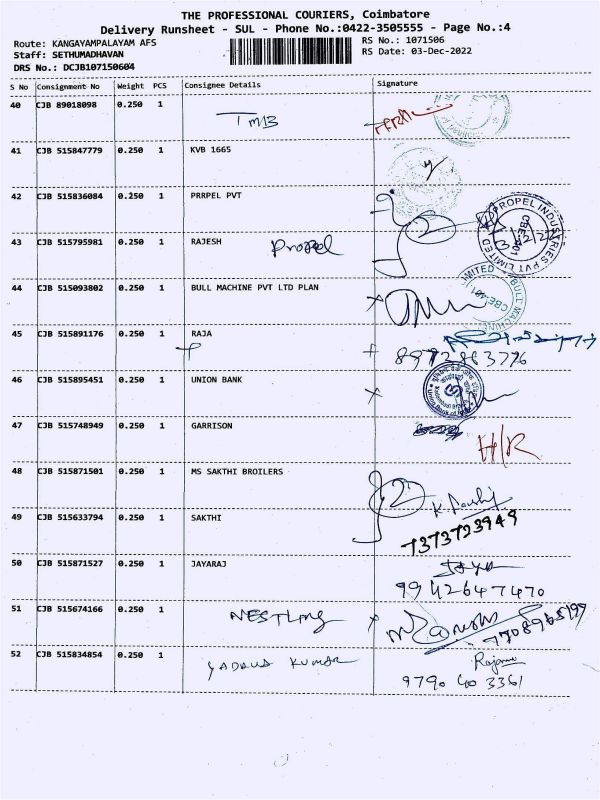 THE PROFESSIONAL COURIERS, Coimbatore
Delivery Runsheet - SUL - Phone No.:0422-3505555 - Page No.:4
Route: KANGAYAMPALAYAM AFS
Staff: SETHUMADHAVAN
DRS No.: DCJB107150604
RS No.: 1071506
RS Date: 03-Dec-2022
S No Consignment No Weight PCS Consignee Details Signature
40 CJB 89018098 0.250 1 TMB
41 CJB 515847779 0.250 1 KVB 1665
42 CJB 515836084 0.250 1 PRRPEL PVT
PROPEL INDUSTRIES PVT LIMITED
CBE-401
43 CJB 515795981 0.250 1 RAJESH Propel
44 CJB 515093802 0.250 1 BULL MACHINE PVT LTD PLAN
45 CJB 515891176 0.250 1 RAJA
46 CJB 515895451 0.250 1 UNION BANK
47 CJB 515748949 0.250 1 GARRISON H/R
48 CJB 515871501 0.250 1 MS SAKTHI BROILERS
49 CJB 515633794 0.250 1 SAKTHI 7373723949
50 CJB 515871527 0.250 1 JAYARAJ 9942647470
51 CJB 515674166 0.250 1 NESTLING
52 CJB 515834854 0.250 1 YADAUS KUMAR 9790 40 3361